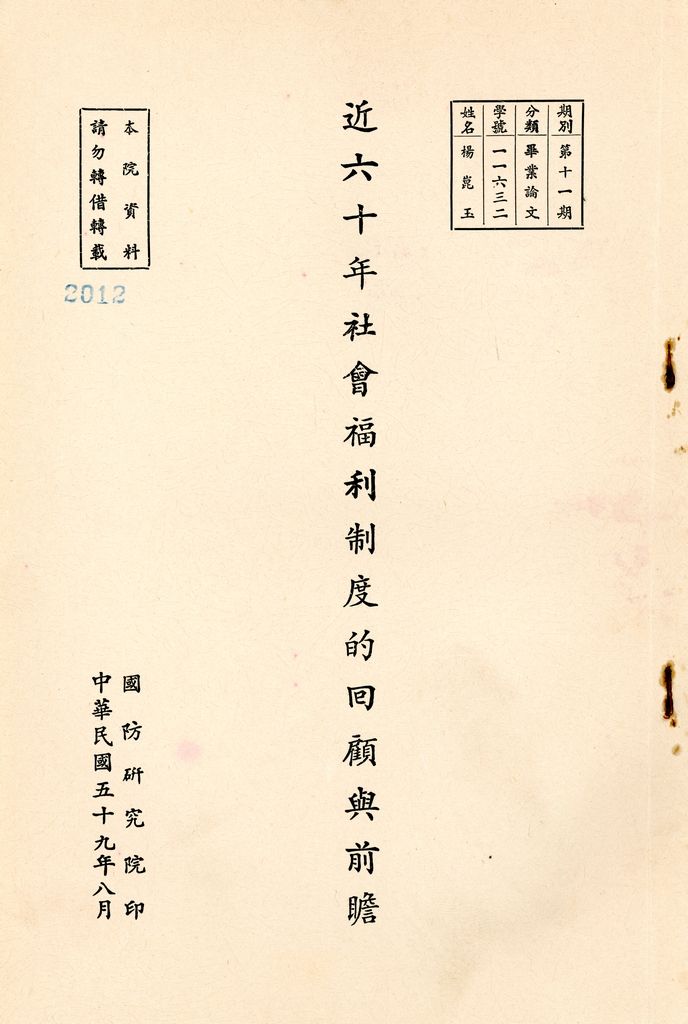 期別 第十一期
分類 畢業論文
學號 一一六三二
姓名 楊崑玉
近六十年社會福利制度的回顧與前瞻
本院資料
請勿轉借轉載
2012
國防研究院印
中華民國五十九年八月